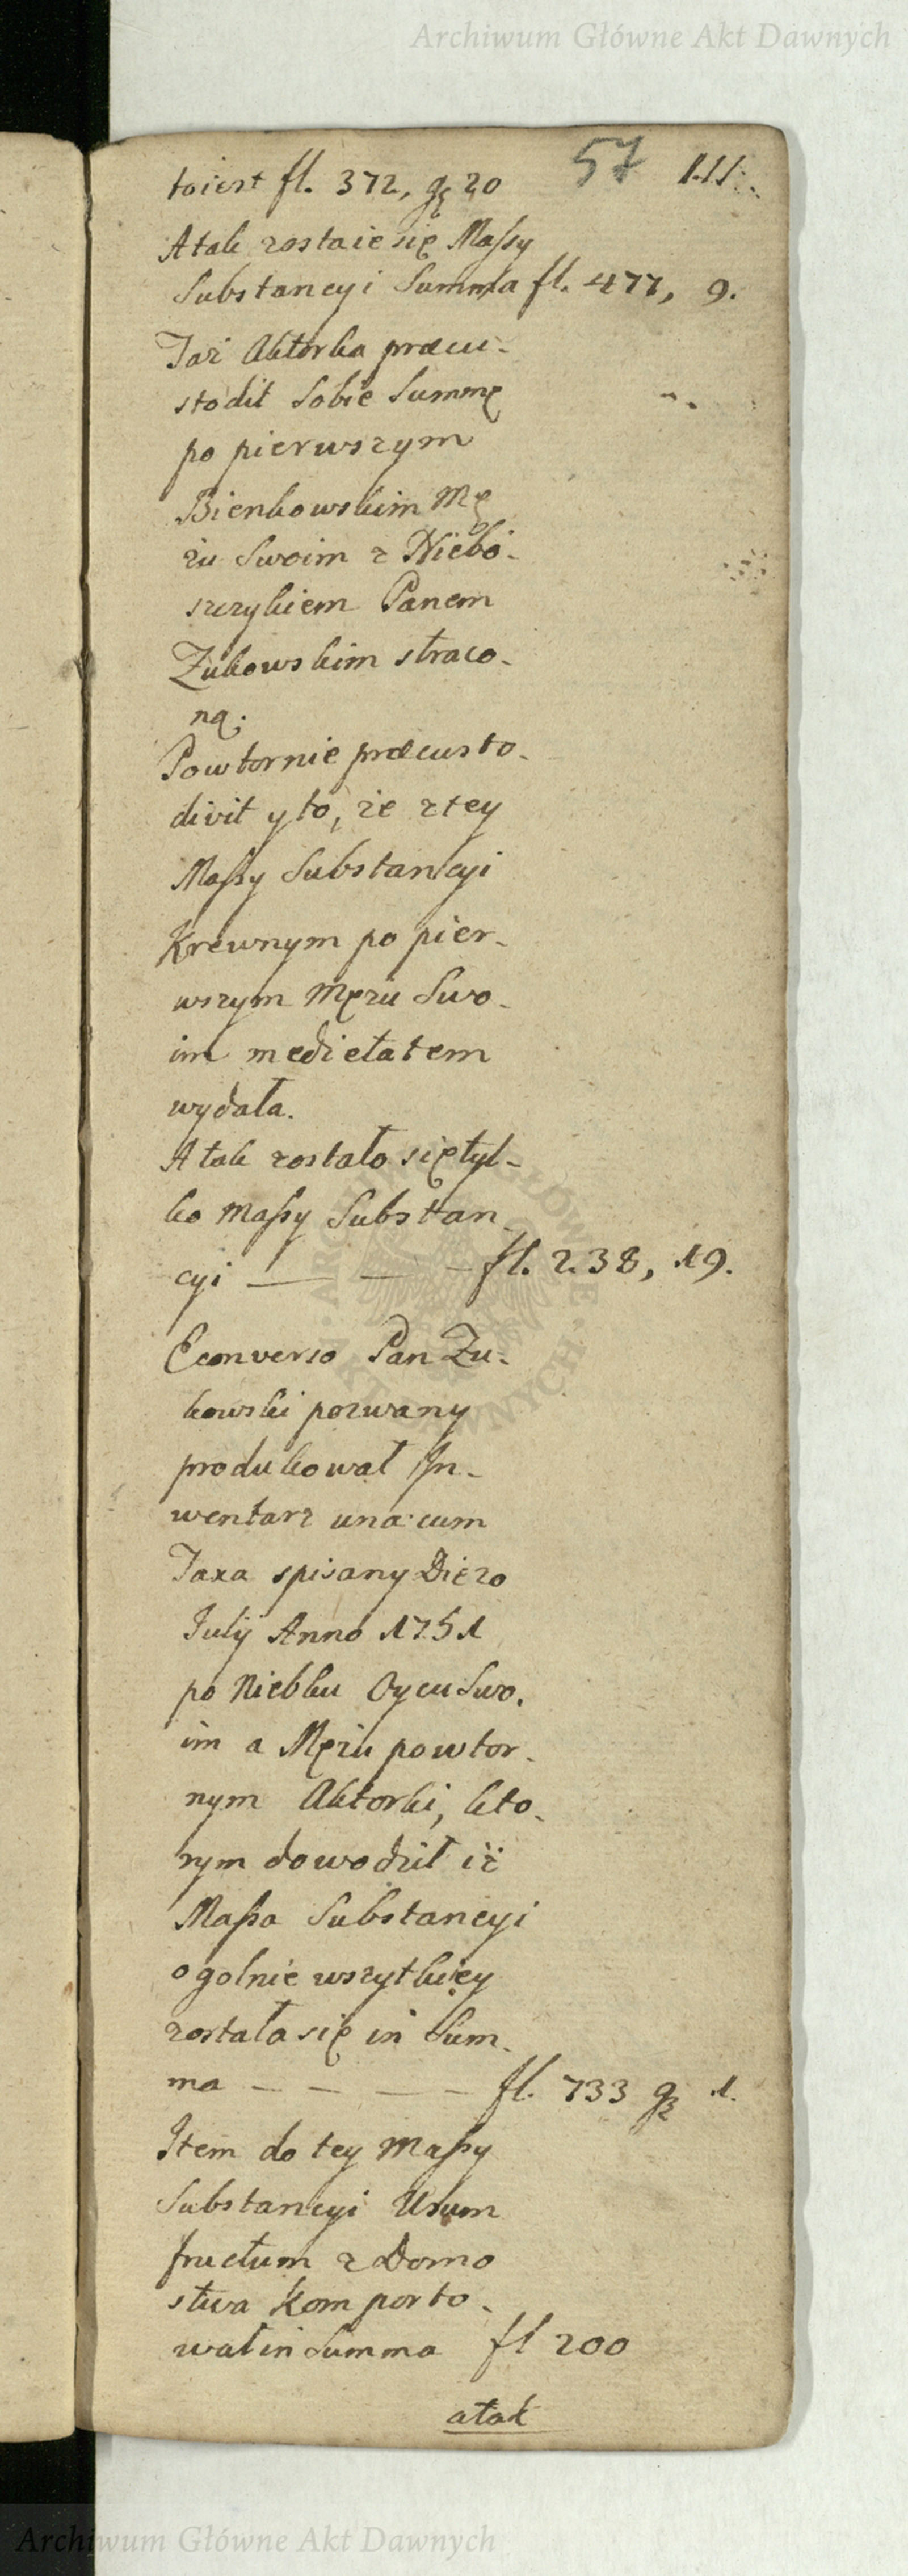 Archiwum Główne Akt Dawnych
57 111.
toiest fl. 372, gę 20
A tak zostaie się Massy
Substancyi Summa fl. 477, 9.
Taż Aktorka præcu-
stodit Sobie Summę
po pierwszym
Bienkowskim Mę
żu Swoim z Niebo-
szczykiem Panem
Zukowskim straco-
ną;
Powtornie præcusto-
divit y to, że z tey
Massy Substancyi
Krewnym po pier-
wszym Mężu Swo-
im medietatem
wydała.
A tak zostało się tyl-
ko Massy Substan
cyi — — — fl. 238, 19.
Econverso Pan Zu-
kowski pozwany
produkował In-
wentarz una cum
Taxa spisany Die 20
Julij Anno 1751
po Niebku Oycu Swo-
im a Mężu powtor-
nym Aktorki, kto-
rym dowodził iż
Massa Substancyi
ogolnie wszytkiey
została się in Sum-
ma — — — — fl. 733 gę 1.
Item do tey Massy
Substancyi Usum
fructum z Domo
stwa komporto-
wał in Summa fl 200
atak
Archiwum Główne Akt Dawnych